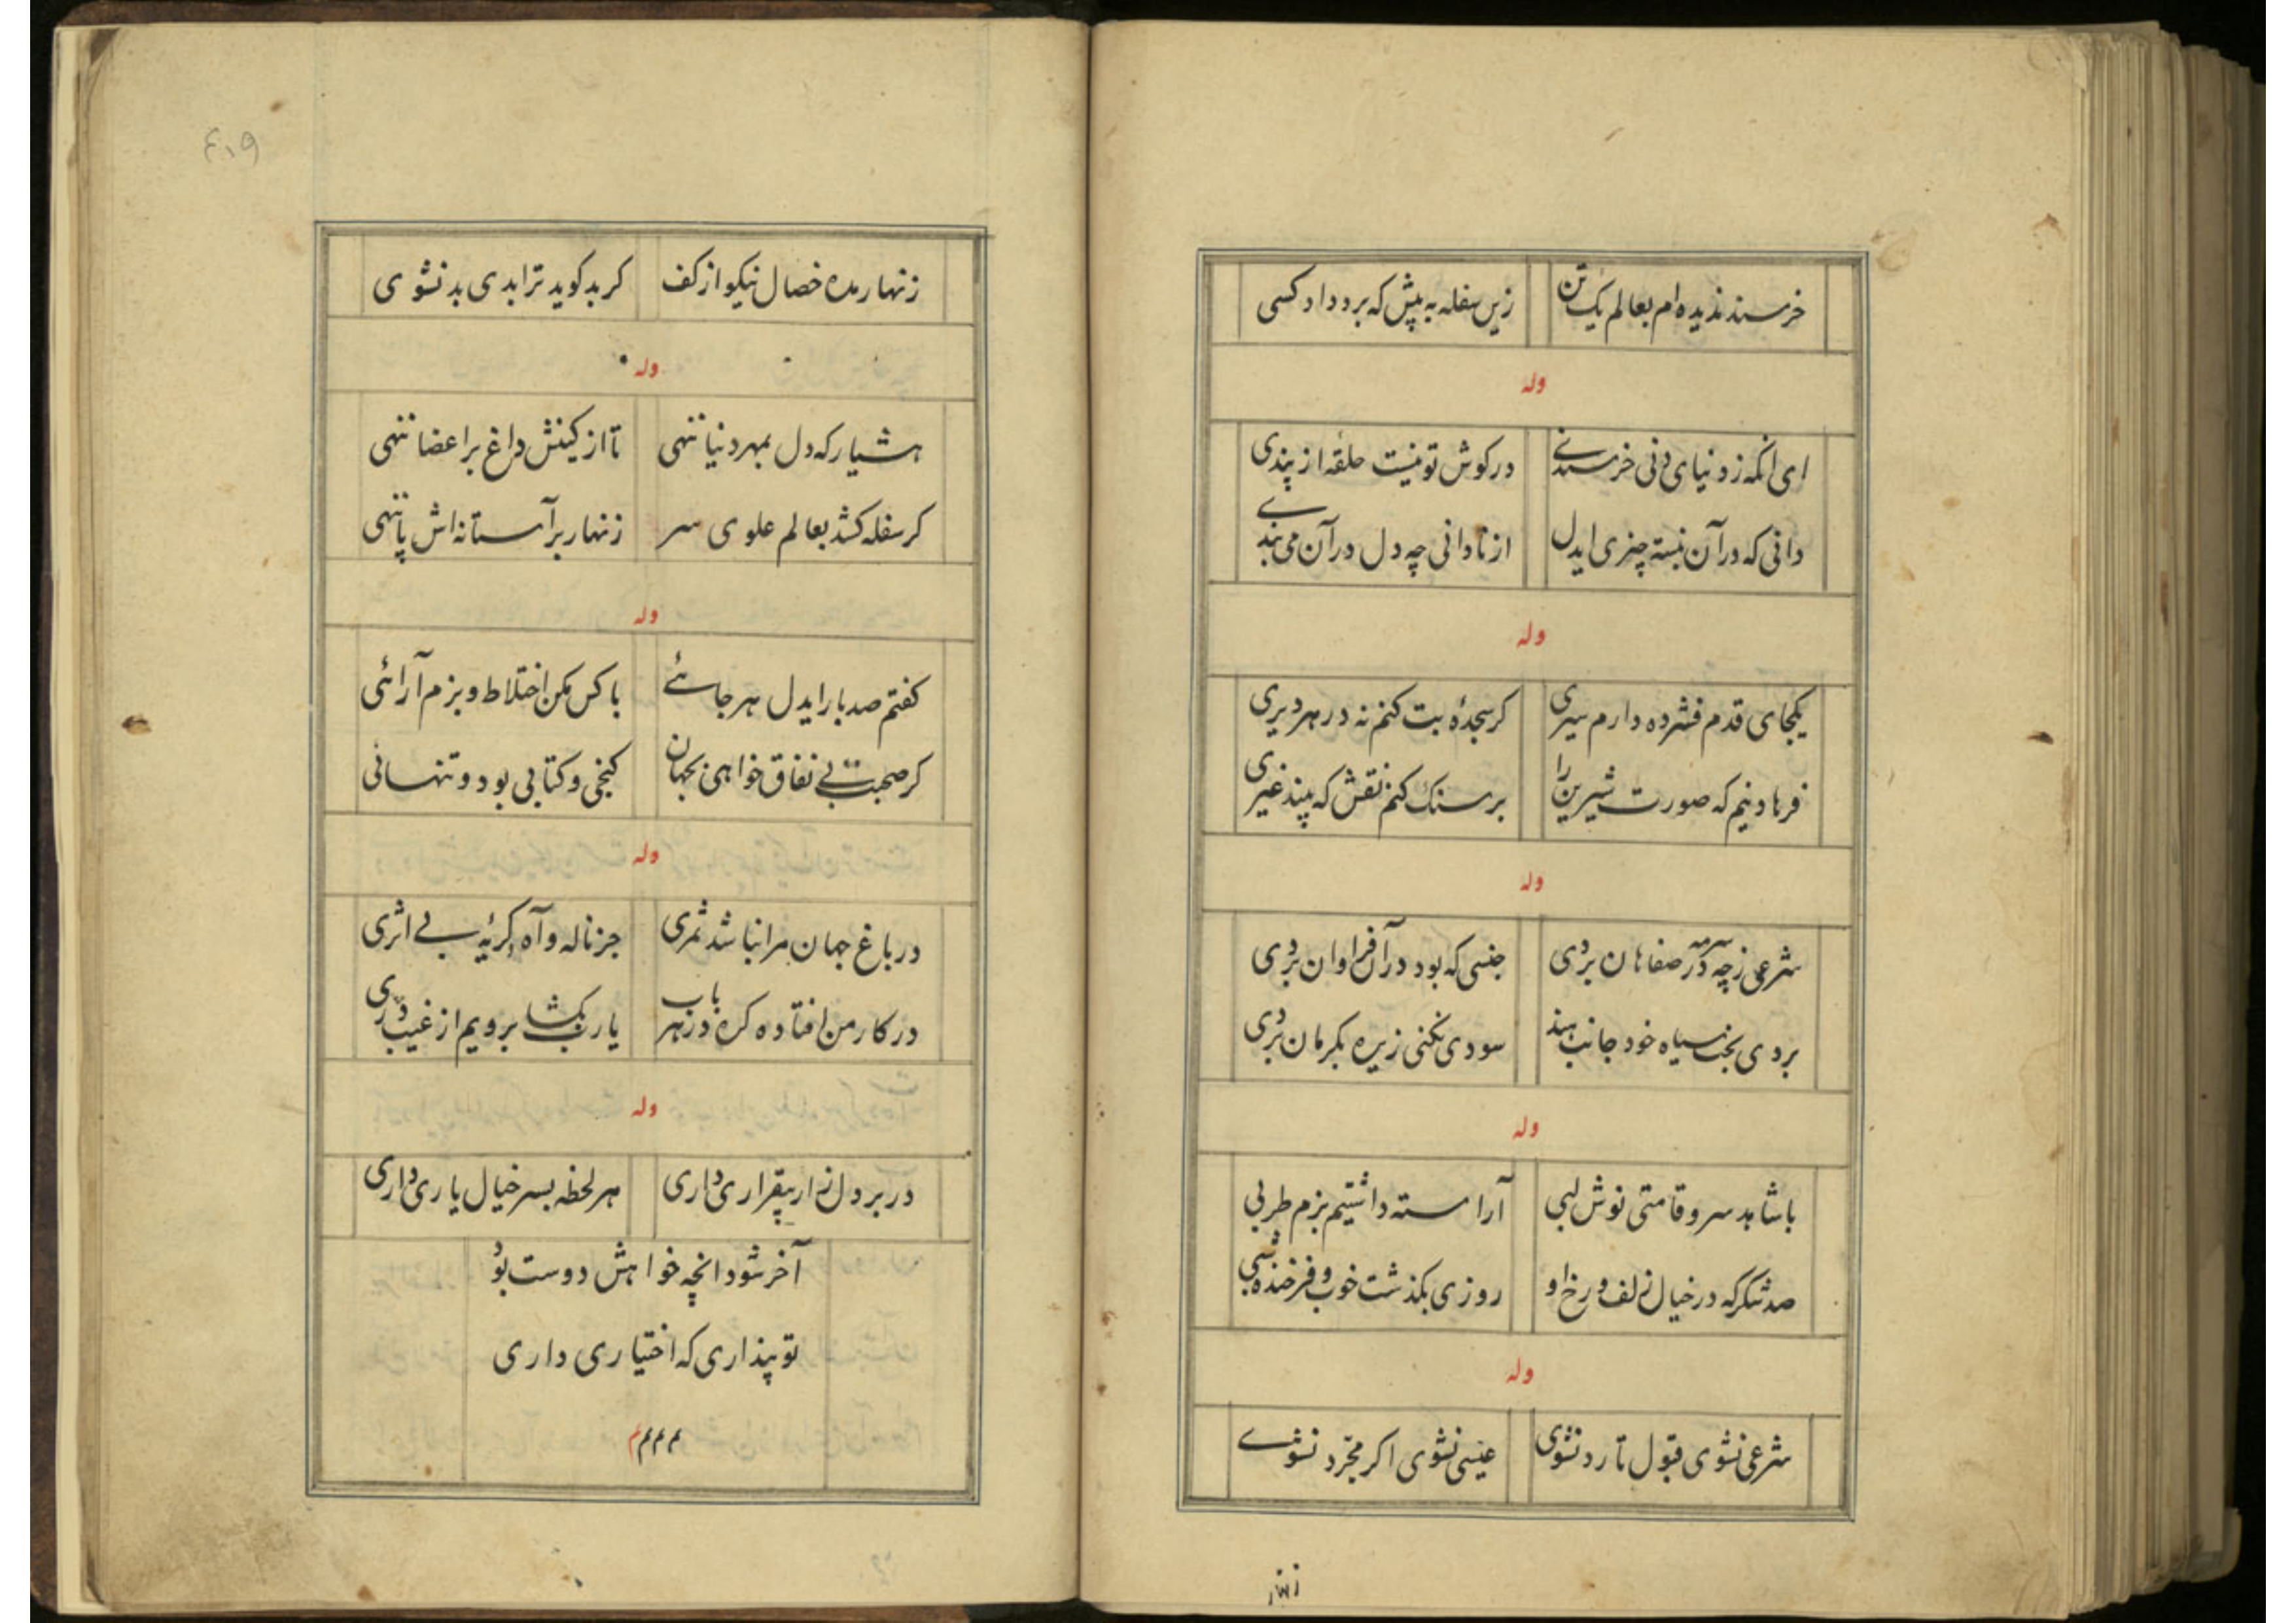 خرسند ندیده‌ام بعالم یک تن زین سفله به پیش که برد داد کسی
وله
ای آنکه ز دنیای دنی خرسندی در کوش تو نیست حلقه از پندی
دانی که در آن نبسته چیزی ایدل از نادانی چه دل در آن می بندی
وله
یکجای قدم فشرده دارم سیری کر سجدهٔ بت کنم نه در هر دیری
فرهاد نیم که صورت شیرین را بر سنک کنم نقش که بیند غیری
وله
شرعی ز چه سرمه در صفاهان بردی جنسی که بود در آن فراوان بردی
بردی بخت سیاه خود جانب هند سودی نکنی زیره بکرمان بردی
وله
با شاهد سرو قامتی نوش لبی آراسته داشتیم بزم طربی
صد شکر که در خیال زلف و رخ او روزی بکذشت خوب و فرخنده شبی
وله
شرعی نشوی قبول تا رد نشوی عیسی نشوی اکر مجرّد نشوے
زنهار
۴۰۹
زنهار مده خصال نیکو از کف کر بد کوید ترا بدی بد نشوی
وله
هشیار که دل بمهر دنیا ننهی تا از کینش داغ بر اعضا ننهی
کر سفله کشد بعالم علوی سر زنهار بر آستانه‌اش پا ننهی
وله
کفتم صد بار ایدل هر جائے با کس مکن اختلاط و بزم آرائی
کر صحبت بے نفاق خواهی بجهان کنجی و کتابی بود و تنهائی
وله
در باغ جهان مرا نباشد ثمری جز ناله و آه و کریهٔ بے اثری
در کار من افتاده کره در هر باب یارب بکشا برویم از غیب دری
وله
در بر دل زار بیقراری داری هر لحظه بسر خیال یاری داری
آخر شود انچه خواهش دوست بود
تو پنداری که اختیاری داری
م م م م